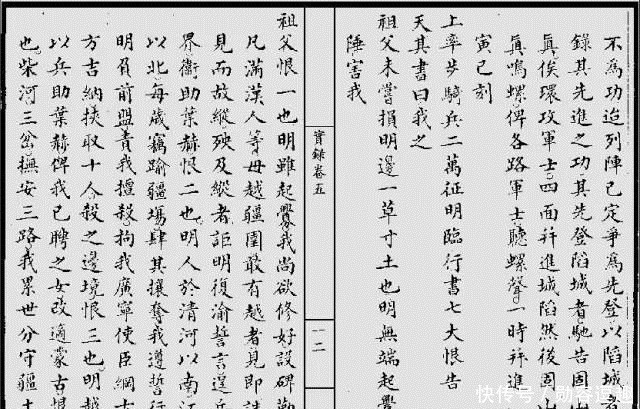 不為功迨列陣已定爭為先登以陷城
錄其先進之功其先登陷城者馳告固山
真俟環攻軍士四面并進城陷然後固
真鳴螺俾各路軍士聽螺聲一時并進
寅巳刻
上率步騎兵二萬征明臨行書七大恨告
天其書曰我之
祖父未嘗損明邊一草寸土也明無端起釁
陲害我
實錄卷五
一二
祖父恨一也明雖起釁我尚欲修好設碑勒
凡滿漢人等毋越疆圉敢有越者見即誅
見而故縱殃及縱者詎明復渝誓言逞兵
界衞助葉赫恨二也明人於清河以南江
以北每歲竊踰疆場肆其攘奪我遵誓行
明負前盟責我擅殺拘我廣寧使臣綱古
方吉納挾取十人殺之邊境恨三也明越
以兵助葉赫俾我已聘之女改適蒙古恨
也柴河三岔撫安三路我累世分守疆土
快传号